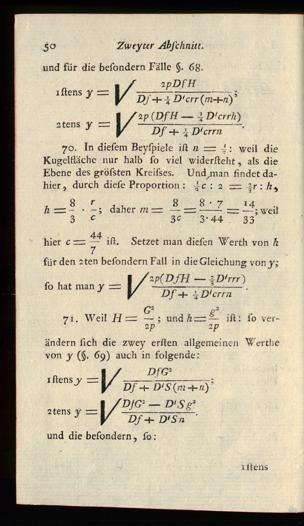 50 Zweyter Abſchnitt.
und für die beſondern Fälle §. 68.
1ſtens y = √ 2pDfH / Df + ¼ D'crr (m+n);
2tens y = √ 2p (DfH — ¾ D'crrh) / Df + ¼ D'crrn.
70. In dieſem Beyſpiele iſt n = ½: weil die
Kugelfläche nur halb ſo viel widerſteht, als die
Ebene des gröſsten Kreiſses. Und man findet da-
hier, durch dieſe Proportion:
h = 8/3 · r/c; daher m = 8/3c = 8 · 7 / 3·44 = 14/33; weil
hier c = 44/7 iſt. Setzet man dieſen Werth von h
für den 2ten beſondern Fall in die Gleichung von y;
ſo hat man y = √
71. Weil H = G²/2p; und h = g²/2p iſt: ſo ver-
ändern ſich die zwey erſten allgemeinen Werthe
von y (§. 69) auch in folgende:
1ſtens y = √ DfG² / Df + D'S (m+n);
2tens y = √ DfG² — D'Sg² / Df + D'Sn.
und die beſondern, ſo:
1ſtens